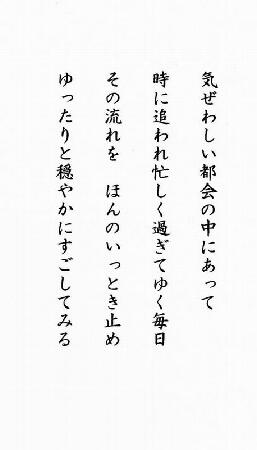 気ぜわしい都会の中にあって
時に追われ忙しく過ぎてゆく毎日
その流れを　ほんのいっとき止め
ゆったりと穏やかにすごしてみる